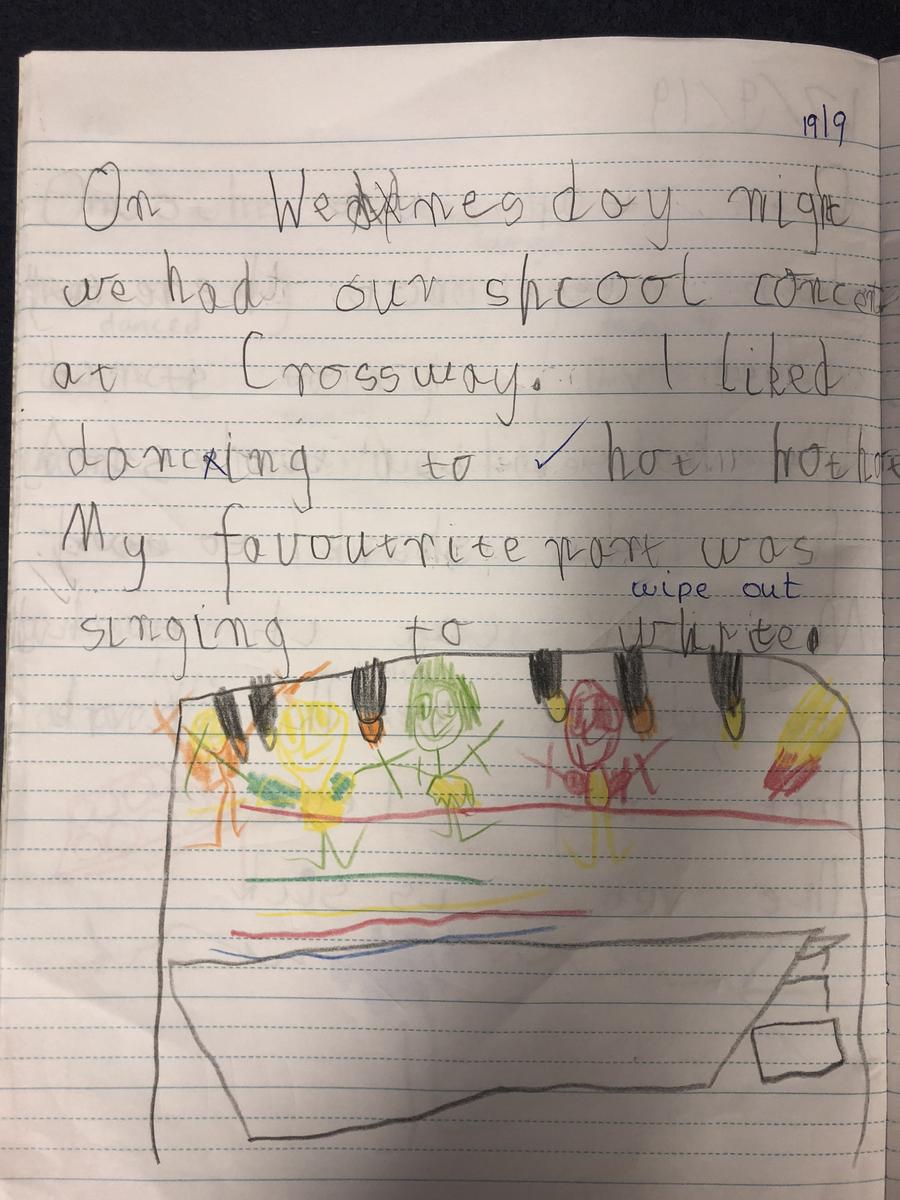 19/9
On Wednesday night
we had our shcool concert
at Crossway. I liked
dancing to hot hot hot
My favoutrite part was
wipe out
singing to whrite.